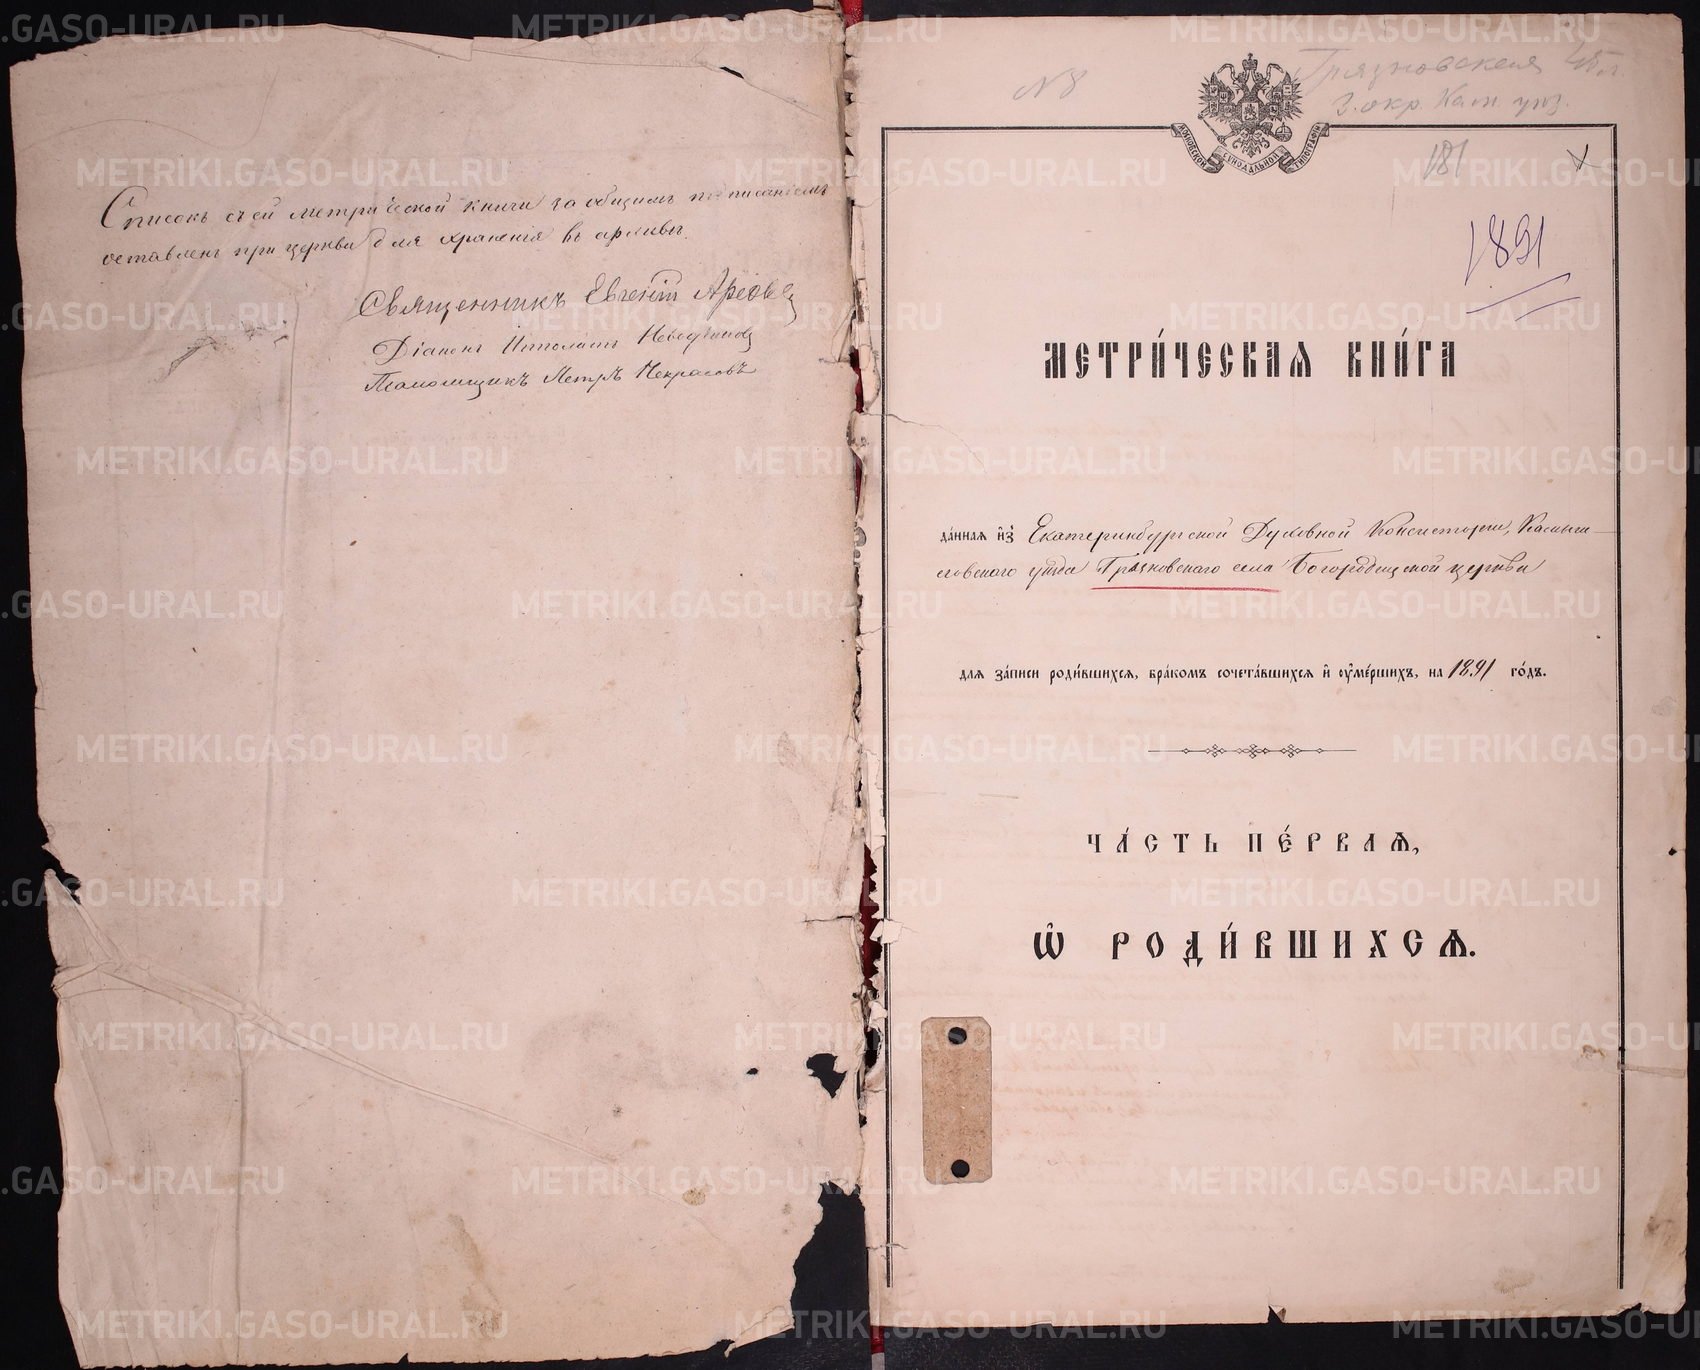 Списокъ съ сей метрической книги за общимъ подписаніемъ
оставленъ при церкви для храненія въ архивѣ.
Священникъ Евгеній
Діаконъ Ипполитъ
Псаломщикъ Петръ Некрасовъ
№ 8
Грязновская
3. окр. Кам. уѣз.
МОСКОВСКОЙ СѴНОДАЛЬНОЙ ТИПОГРАФІИ
181
1891
МЕТРИ́ЧЕСКАѦ КНИ́ГА
да́нная и҆з̾ Екатеринбургской Духовной Консисторіи, Камыш-
ловскаго уѣзда Грязновскаго села Богородицкой церкви
для за́писи роди́вшихсѧ, бра́комъ сочета́вшихсѧ и҆ оу҆ме́ршихъ, на 1891 го́дъ.
ЧА́СТЬ ПЕ́РВАѦ,
Ѡ҆ РОДИ́ВШИХСѦ.
METRIKI.GASO-URAL.RU